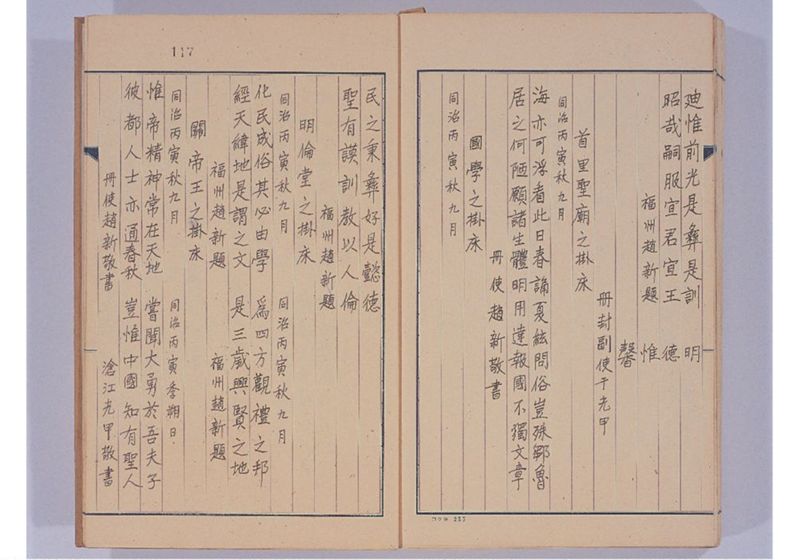 廸惟前光是彝是訓 明
昭哉嗣服宣君宣王 德
福州趙新題 惟
馨
冊封副使于光甲
首里聖廟之掛床
同治丙寅秋九月
海亦可浮看此日春誦夏絃問俗豈殊鄒魯
居之何陋願諸生體明用達報國不獨文章
冊使趙新敬書
國學之掛床
同治丙寅秋九月
117
民之秉彝好是懿德
聖有謨訓教以人倫
福州趙新題
明倫堂之掛床
同治丙寅秋九月 同治丙寅秋九月
化民成俗其必由學 爲四方觀禮之邦
經天緯地是謂之文 是三歲興賢之地
福州趙新題 福州趙新題
關帝王之掛床
同治丙寅秋九月 同治丙寅季朔日
惟帝精神常在天地 嘗聞大勇於吾夫子
彼都人士亦通春秋 豈惟中國知有聖人
冊使趙新敬書 滄江光甲敬書